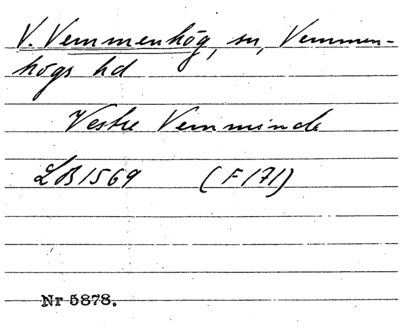 V. Vemmenhög, sn, Vemmen-
högs hd
Vestre Vemminde
LB 1569 (F 171)
Nr 5878.